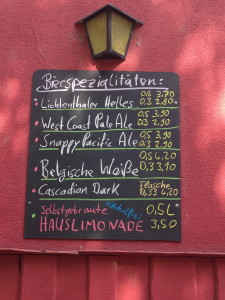 Bierspezialitäten:
Lichtenthaler Helles 0,5 3,70
0,3 2,80
West Coast Pale Ale 0,5 3,90
0,3 2,90
Snappy Pacific Ale 0,5 3,90
0,3 2,90
Belgische Weiße 0,5 4,20
0,3 3,10
Cascadian Dark Flasche
0,33 4,20
Selbstgebraute alkoholfrei 0,5L
HAUSLIMONADE 3,50